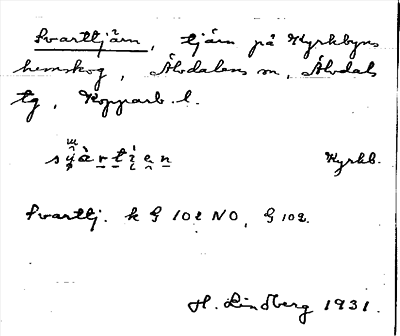 Svarttjärn, tjärn på Kyrkbyns
hemskog, Älvdalens sn, Älvdals
tg, Kopparb. l.
Kyrkb.
Svarttj. k G 102 NO, G 102.
H. Lindberg 1931.